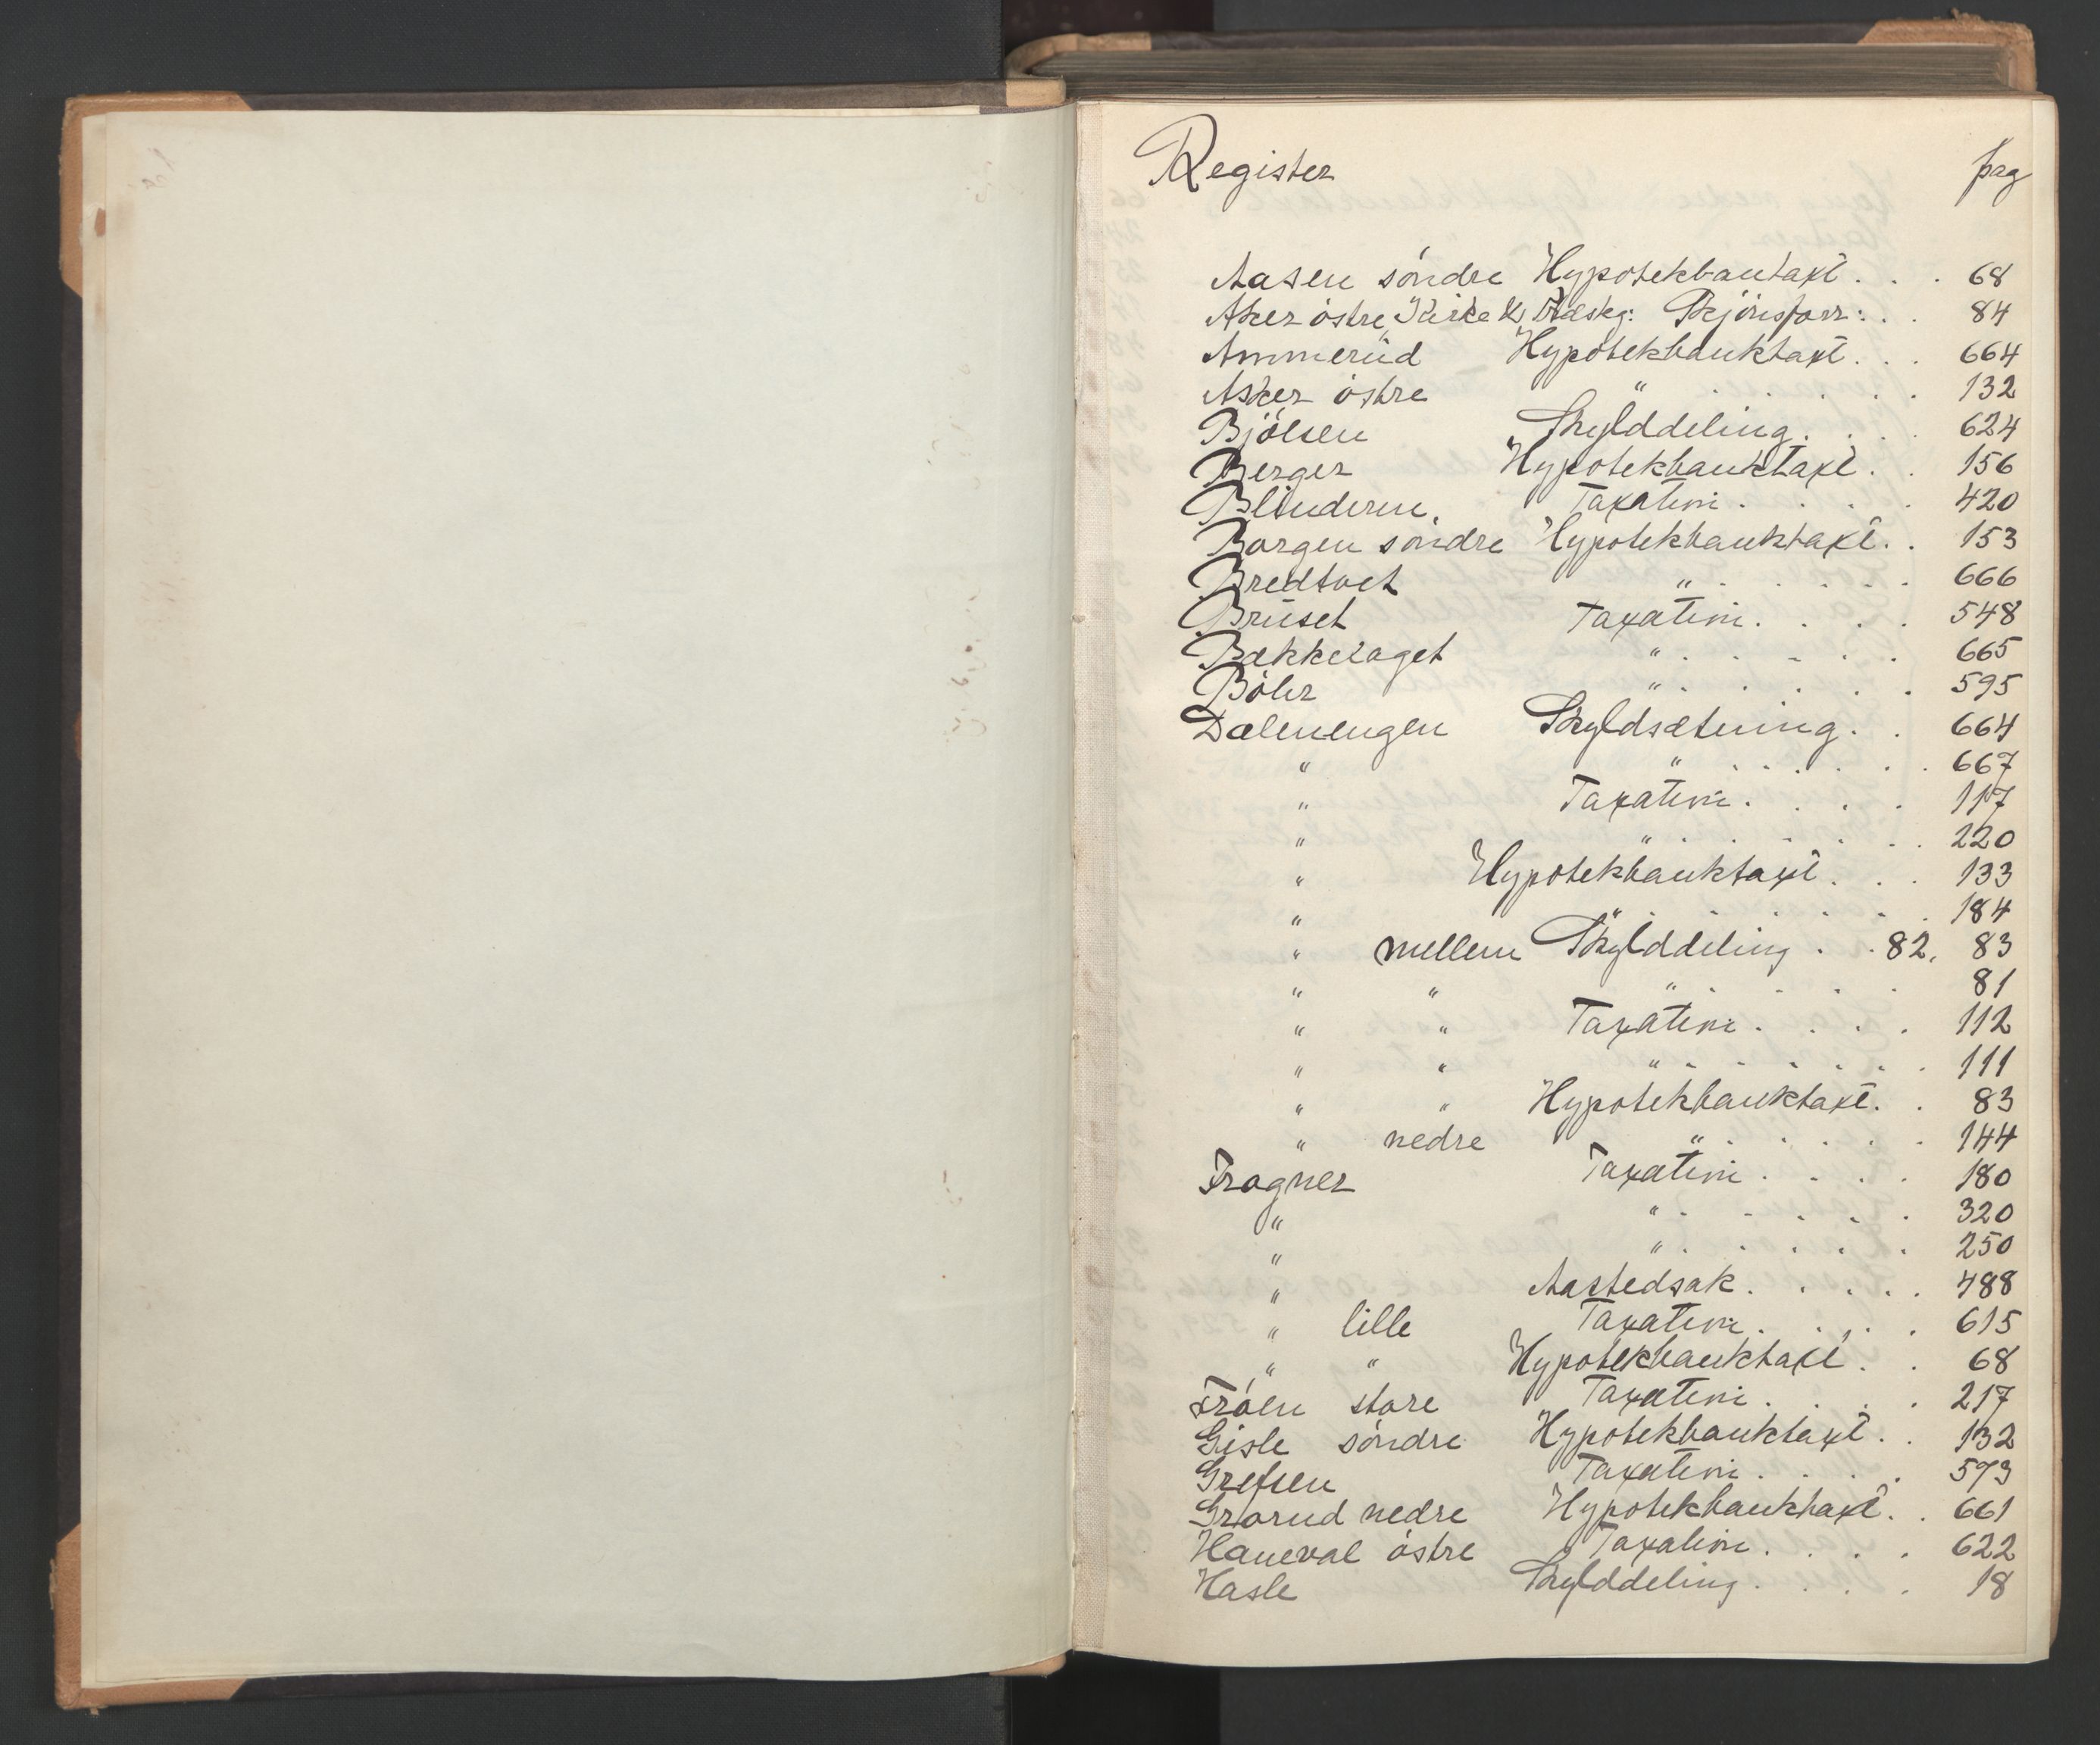 Register pag
Aasen söndre Hypotekbantaxt . . . 68
Aker östre, Kirke & Præstg: Skjönsforr: . . 84
Ammerüd Hypotekbanktaxt . . . 664
Asker östre " . . . . . 132
Bjölsen Skylddeling . . . . 624
Berger Hypotekbanktaxt . . 156
Blindern. Taxation . . . . 420
Borgen söndre Hypotekbanktaxt . . 153
Bredtvet " . . . . . 666
Brüset Taxation . . . . 548
Bækkelaget " . . . . . 665
Böler " . . . . . 595
Dælenengen Skyldsætning . . 664
" " . . . . . . 667
" Taxation . . . . 117
" " . . . . . . 220
" Hypotekbanktaxt . . . 133
" " . . . . . . 184
" mellem Skylddeling . . 82, 83
" " " . . . . . 81
" " Taxation . . . . 112
" " " . . . . . . 111
" " Hypotekbanktaxt . . 83
" nedre " . . . . . 144
Frogner Taxation . . . . 180
" " . . . . . 320
" " . . . . . 250
" Aastedsak . . . . . 488
" lille Taxation . . . . 615
" " Hypotekbanktaxt . . 68
Fröen store Taxation . . . . 217
Gisle söndre Hypotekbanktaxt . . 132
Grefsen Taxation . . . . 573
Grorud nedre Hypotekbanktaxt . . 661
Haneval östre Taxation . . . . 622
Hasle Skylddeling . . . . 18